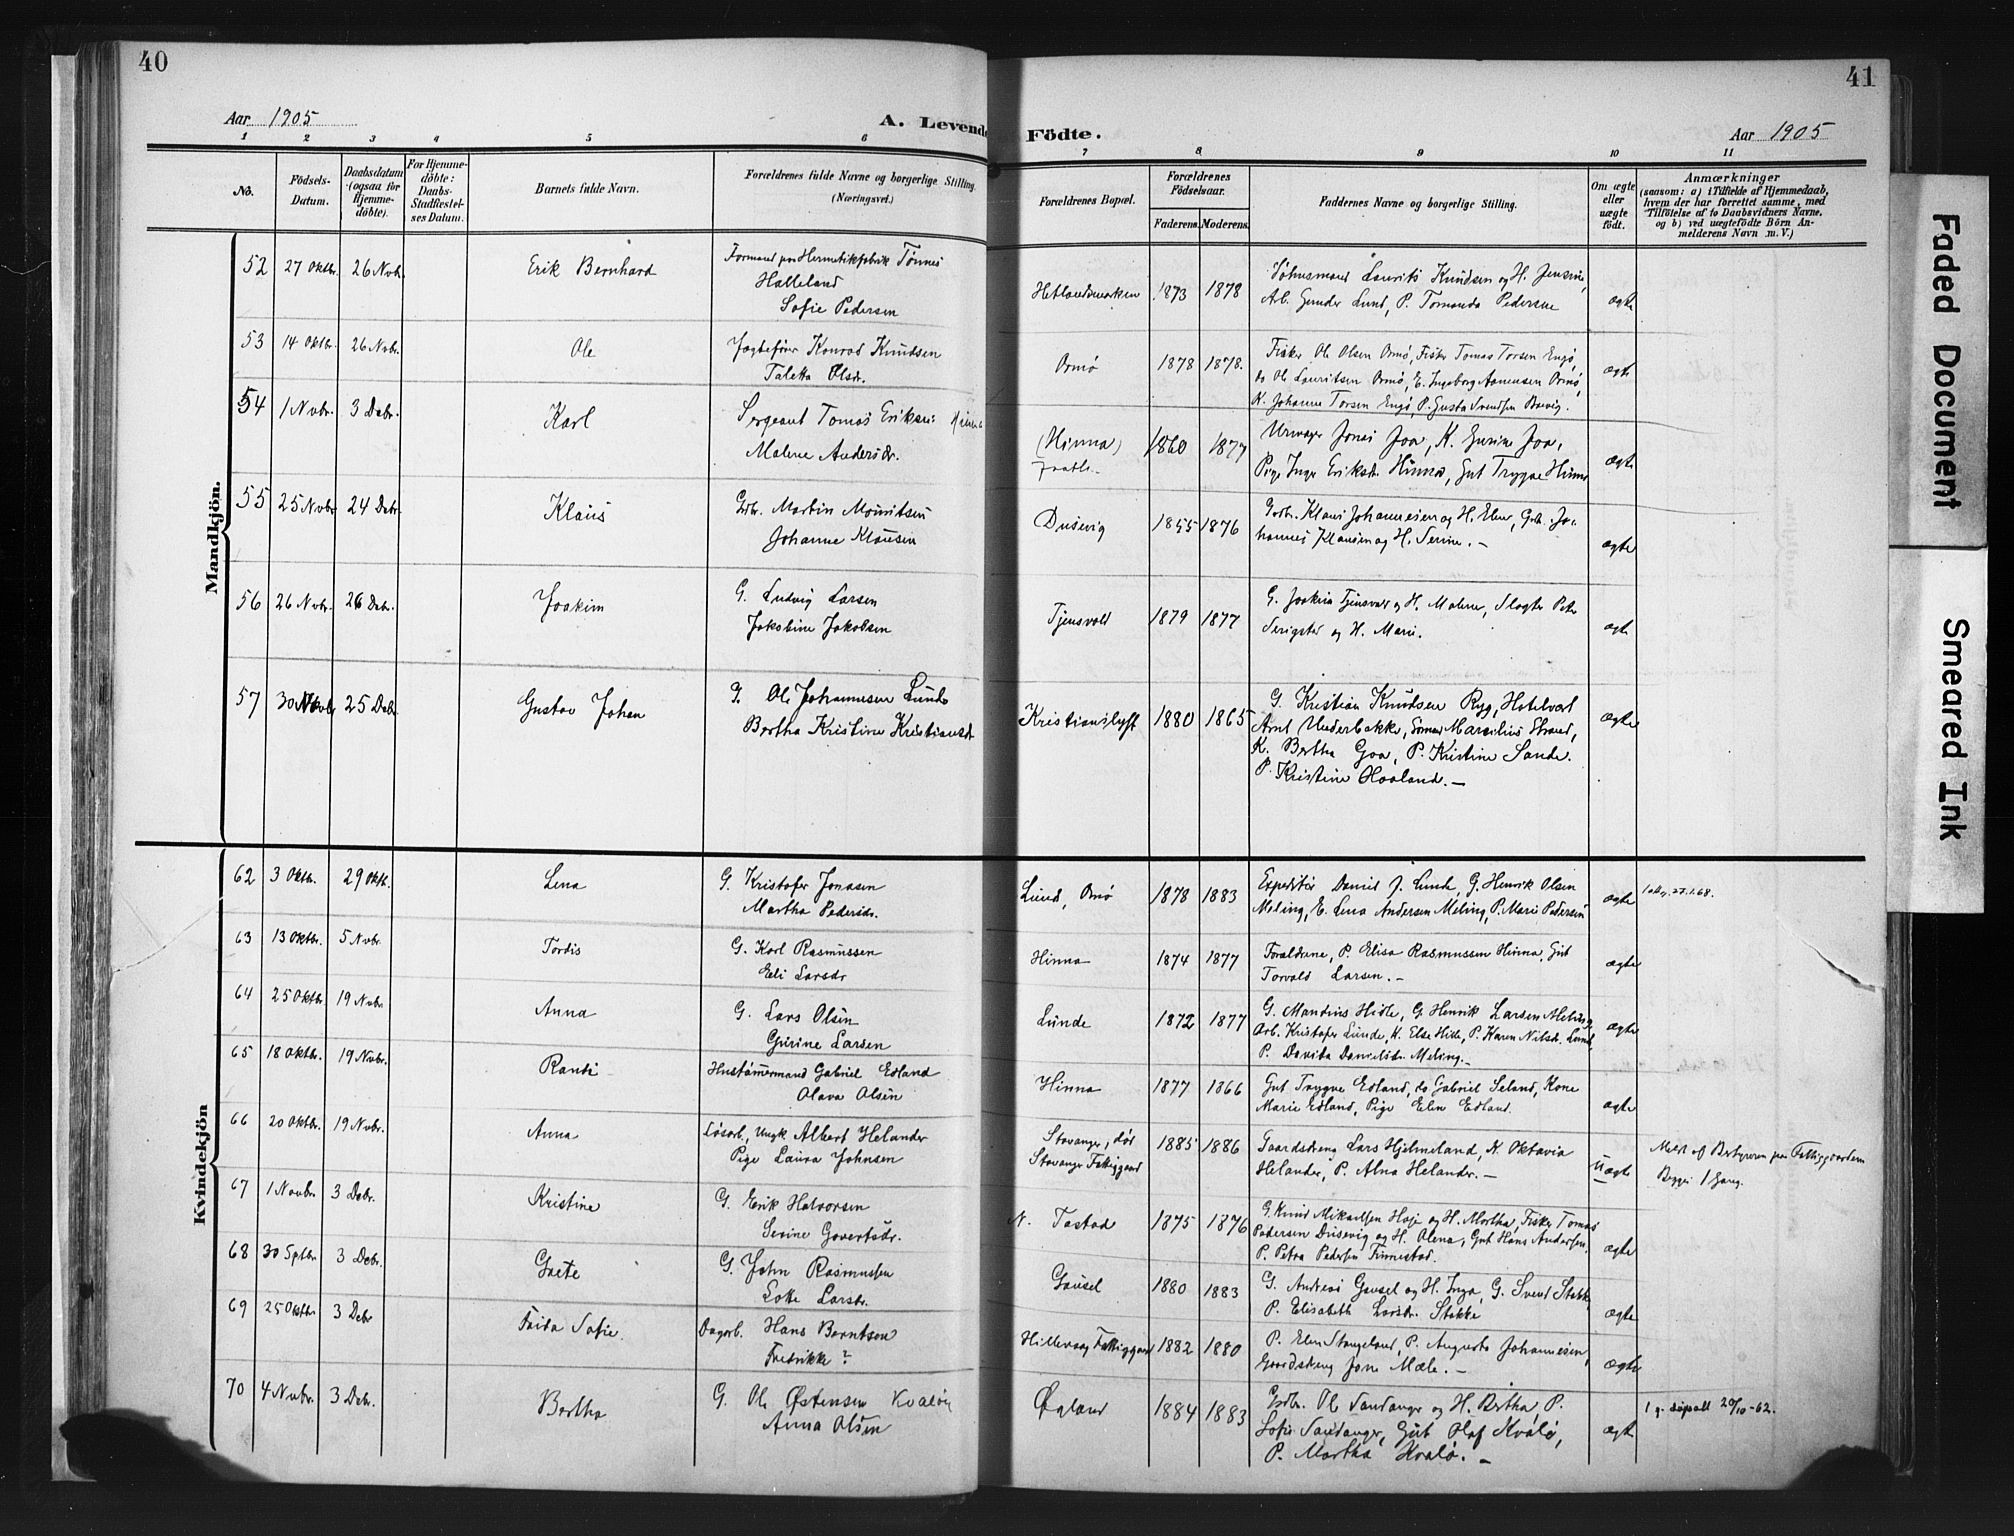 40
Aar 1905
A. Levende Födte.
Aar 1905
41
1 2 3 4 5 6 7 8 9 10 11
No.
Födsels-Datum.
Daabsdatum (ogsaa for Hjemmedöbte).
For Hjemmedöbte: Daabs-Stadfæstelses Datum.
Barnets fulde Navn.
Forældrenes fulde Navne og borgerlige Stilling. (Næringsvei.)
Forældrenes Bopæl.
Forældrenes Födselsaar.
Faderens. Moderens.
Faddernes Navne og borgerlige Stilling.
Om ægte eller uægte födt.
Anmærkninger
(saasom: a) i Tilfælde af Hjemmedaab, hvem der har forrettet samme, med Tilföielse af to Daabsvidners Navne, og b) ved uægtefödte Börn Anmelderens Navn m. V.)
Mandkjön.
52 27 Oktbr. 26 Novbr. Erik Bernhard
Formand paa Hermetikfabrik Tønnes
Halleland
Sofie Pedersen
Hetlandsmarken 1873 1878
Laurits Knudsen og H. Jensine,
Arb. Gunder Lund, P. Tomanda Pedersen
ægte
53 14 Oktbr. 26 Novbr. Ole
Jægtefører Konrad Knudsen
Taletta Olsdr.
Ormø 1878 1878.
Fisker Ole Olsen Ormø, Fisker Tomas Torsen Engø,
do Ole Lauritsen Ormø, E. Ingeborg Asmusen Ormø,
K. Johanne Torsen Engø, P. Gusta Svendsen
ægte
54 1 Nvbr. 3 Debr. Karl
Sergeant Tomas Eriksen Hinna
Malene Andersdr.
(Hinna) 1860 1877
Urmager Jonas Joa, K. Gurine Joa,
Pige Inga Eriksdr. Hinna, Gut Trygve Hinna
ægte
55 25 Novbr. 24 Debr. Klaus
Gdbr. Martin Mouritsen
Johanne Klausen
Dusevig 1855 1876
Gdbr. Klaus Johannesen og H. Elen, Gdb. Jo-
hannes Klausen og H. Serine. –
ægte
56 26 Nvbr. 26 Debr. Joakim
G. Ludvig Larsen
Jakobine Jakobsen
Tjensvold 1879 1877
G. Joakim Tjensvold og H. Malene, Slagter Peter
Serigstad og H. Marie.
ægte
57 30 Novbr. 25 Debr. Gustav Johan
G. Ole Johannesen Lunde
Bertha Kristine Kristiansdr.
Kristianslyst 1880 1865
G. Kristian Knudsen Ryg, Hotelvært
Arnt Underbakke, Sømand Marselius Strand,
K. Bertha Goa, P. Kristine Sande.
P. Kristine Haaland. –
ægte
Kvindekjön
62 3 Oktbr. 29 Oktb. Lena
G. Kristofer Jonasen
Martha Pedersdr.
Lund, Omø 1878 1883
Expeditør Daniel J. Lunde, G. Henrik Olsen
Meling, E. Lena Andersen Meling, P. Marie Pedersen
ægte 27.1.68.
63 13 Oktbr. 5 Novbr. Tordis
G. Karl Rasmussen
Eli Larsdr
Hinna 1874 1877
Forældrene, P. Elisa Rasmussen Hinna, Gut
Torvald Larsen. –
ægte
64 25 Oktbr. 19 Nvbr. Anna
G. Lars Olsen
Gurine Larsen
Lunde 1872 1877
G. Mandius Hidle, G. Henrik Larsen Meling,
Arb. Kristofer Lunde, K. Else Hidle, P. Karen Nilsdr. Lund,
P. Davida Danielsdr. Meling. –
ægte
65 18 Oktbr. 19 Nvbr. Randi
Hustømmermand Gabriel Edland
Olava Olsen
Hinna 1877 1866
Gut Trygve Edland, do Gabriel Seland, Kone
Marie Edland, Pige Elen Edland.
ægte
66 20 Oktbr. 19 Nvbr. Anna
Løsarb., Ungk. Albert Helander
Pige Laura Johnsen
Stavanger, død
Stavanger Fattiggaard
1885 1886
Gaardsdreng Lars Hjelmeland, K. Oktavia
Helander, P. Alna Helander. –
uægte
Meldt af Bestyreren paa Fattiggaarden
Begges 1 Gang.
67 1 Novbr. 3 Debr. Kristine
G. Erik Halvorsen
Serine Govertsdr.
N. Tastad 1875 1876
G. Knud Mikaelsen Haje og H. Martha, Fisker Tomas
Pedersen Dusevig og H. Olena, Gut Hans Andersen,
P. Petra Pedersen Finnestad.
ægte
68 30 Sptbr. 3 Debr. Grete
G. John Rasmussen
Lotte Larsdr.
Gausel 1880 1883
G. Andreas Gausel og H. Inga, G. Svend Stokke
P. Elisabeth Larsdr. Stokke
ægte
69 25 Oktbr 3 Debr Frida Sofie.
Dagarb. Hans Berntsen
Fredrikke ?
Hillevaag Fattiggaard 1882 1880
P. Elen Stangeland, P. Augusta Johannesen,
Gaardsdreng Jone Mæle. –
ægte
70 4 Nvbr. 3 Debr. Bertha
G. Ole Østensen Kvaløy
Anna Olsen
Øgland 1884 1883
Gdbr. Ole Sandanger og H. Bertha, P.
Sofie Sandanger, Gut Olaf Kvalø,
P. Martha Kvalø. –
ægte 1 g. dåpsatt 20/10-62.
Faded Document
Smeared Ink